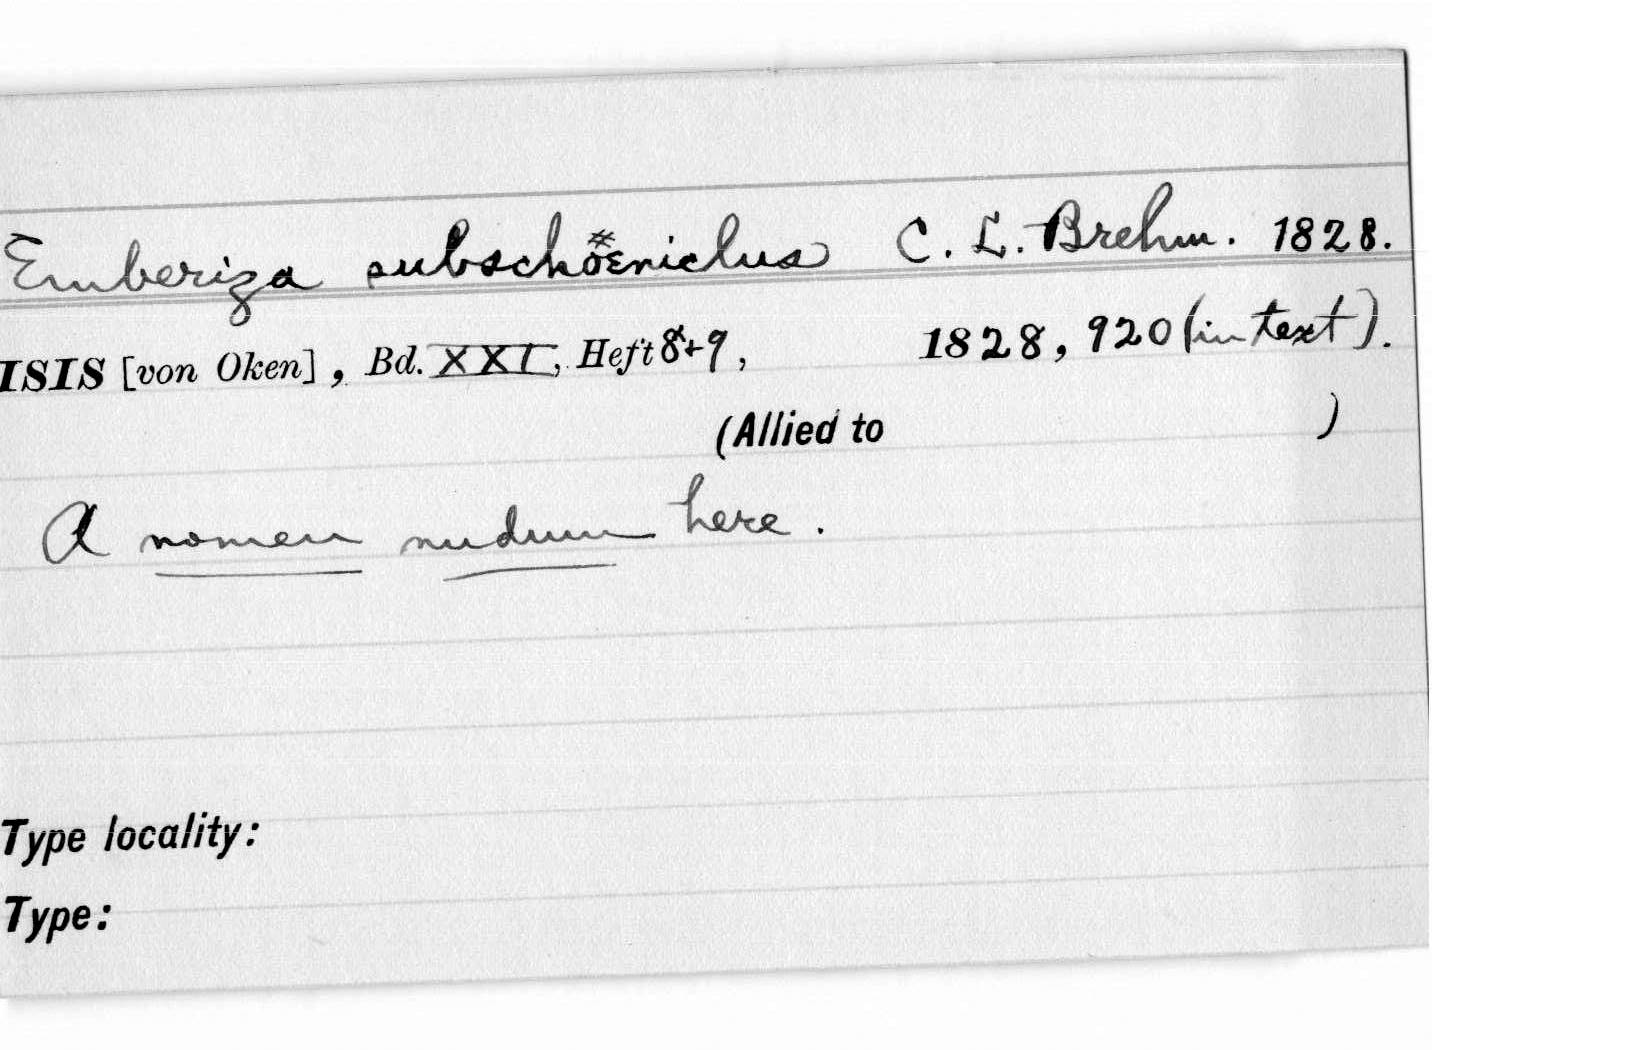 Emberiza subschöeniclus C. L. Brehm. 1828.
ISIS [von Oken], Bd. XXI, Heft 8+9, 1828, 920 (in text).
(Allied to )
A nomen nudum here.
Type locality:
Type: